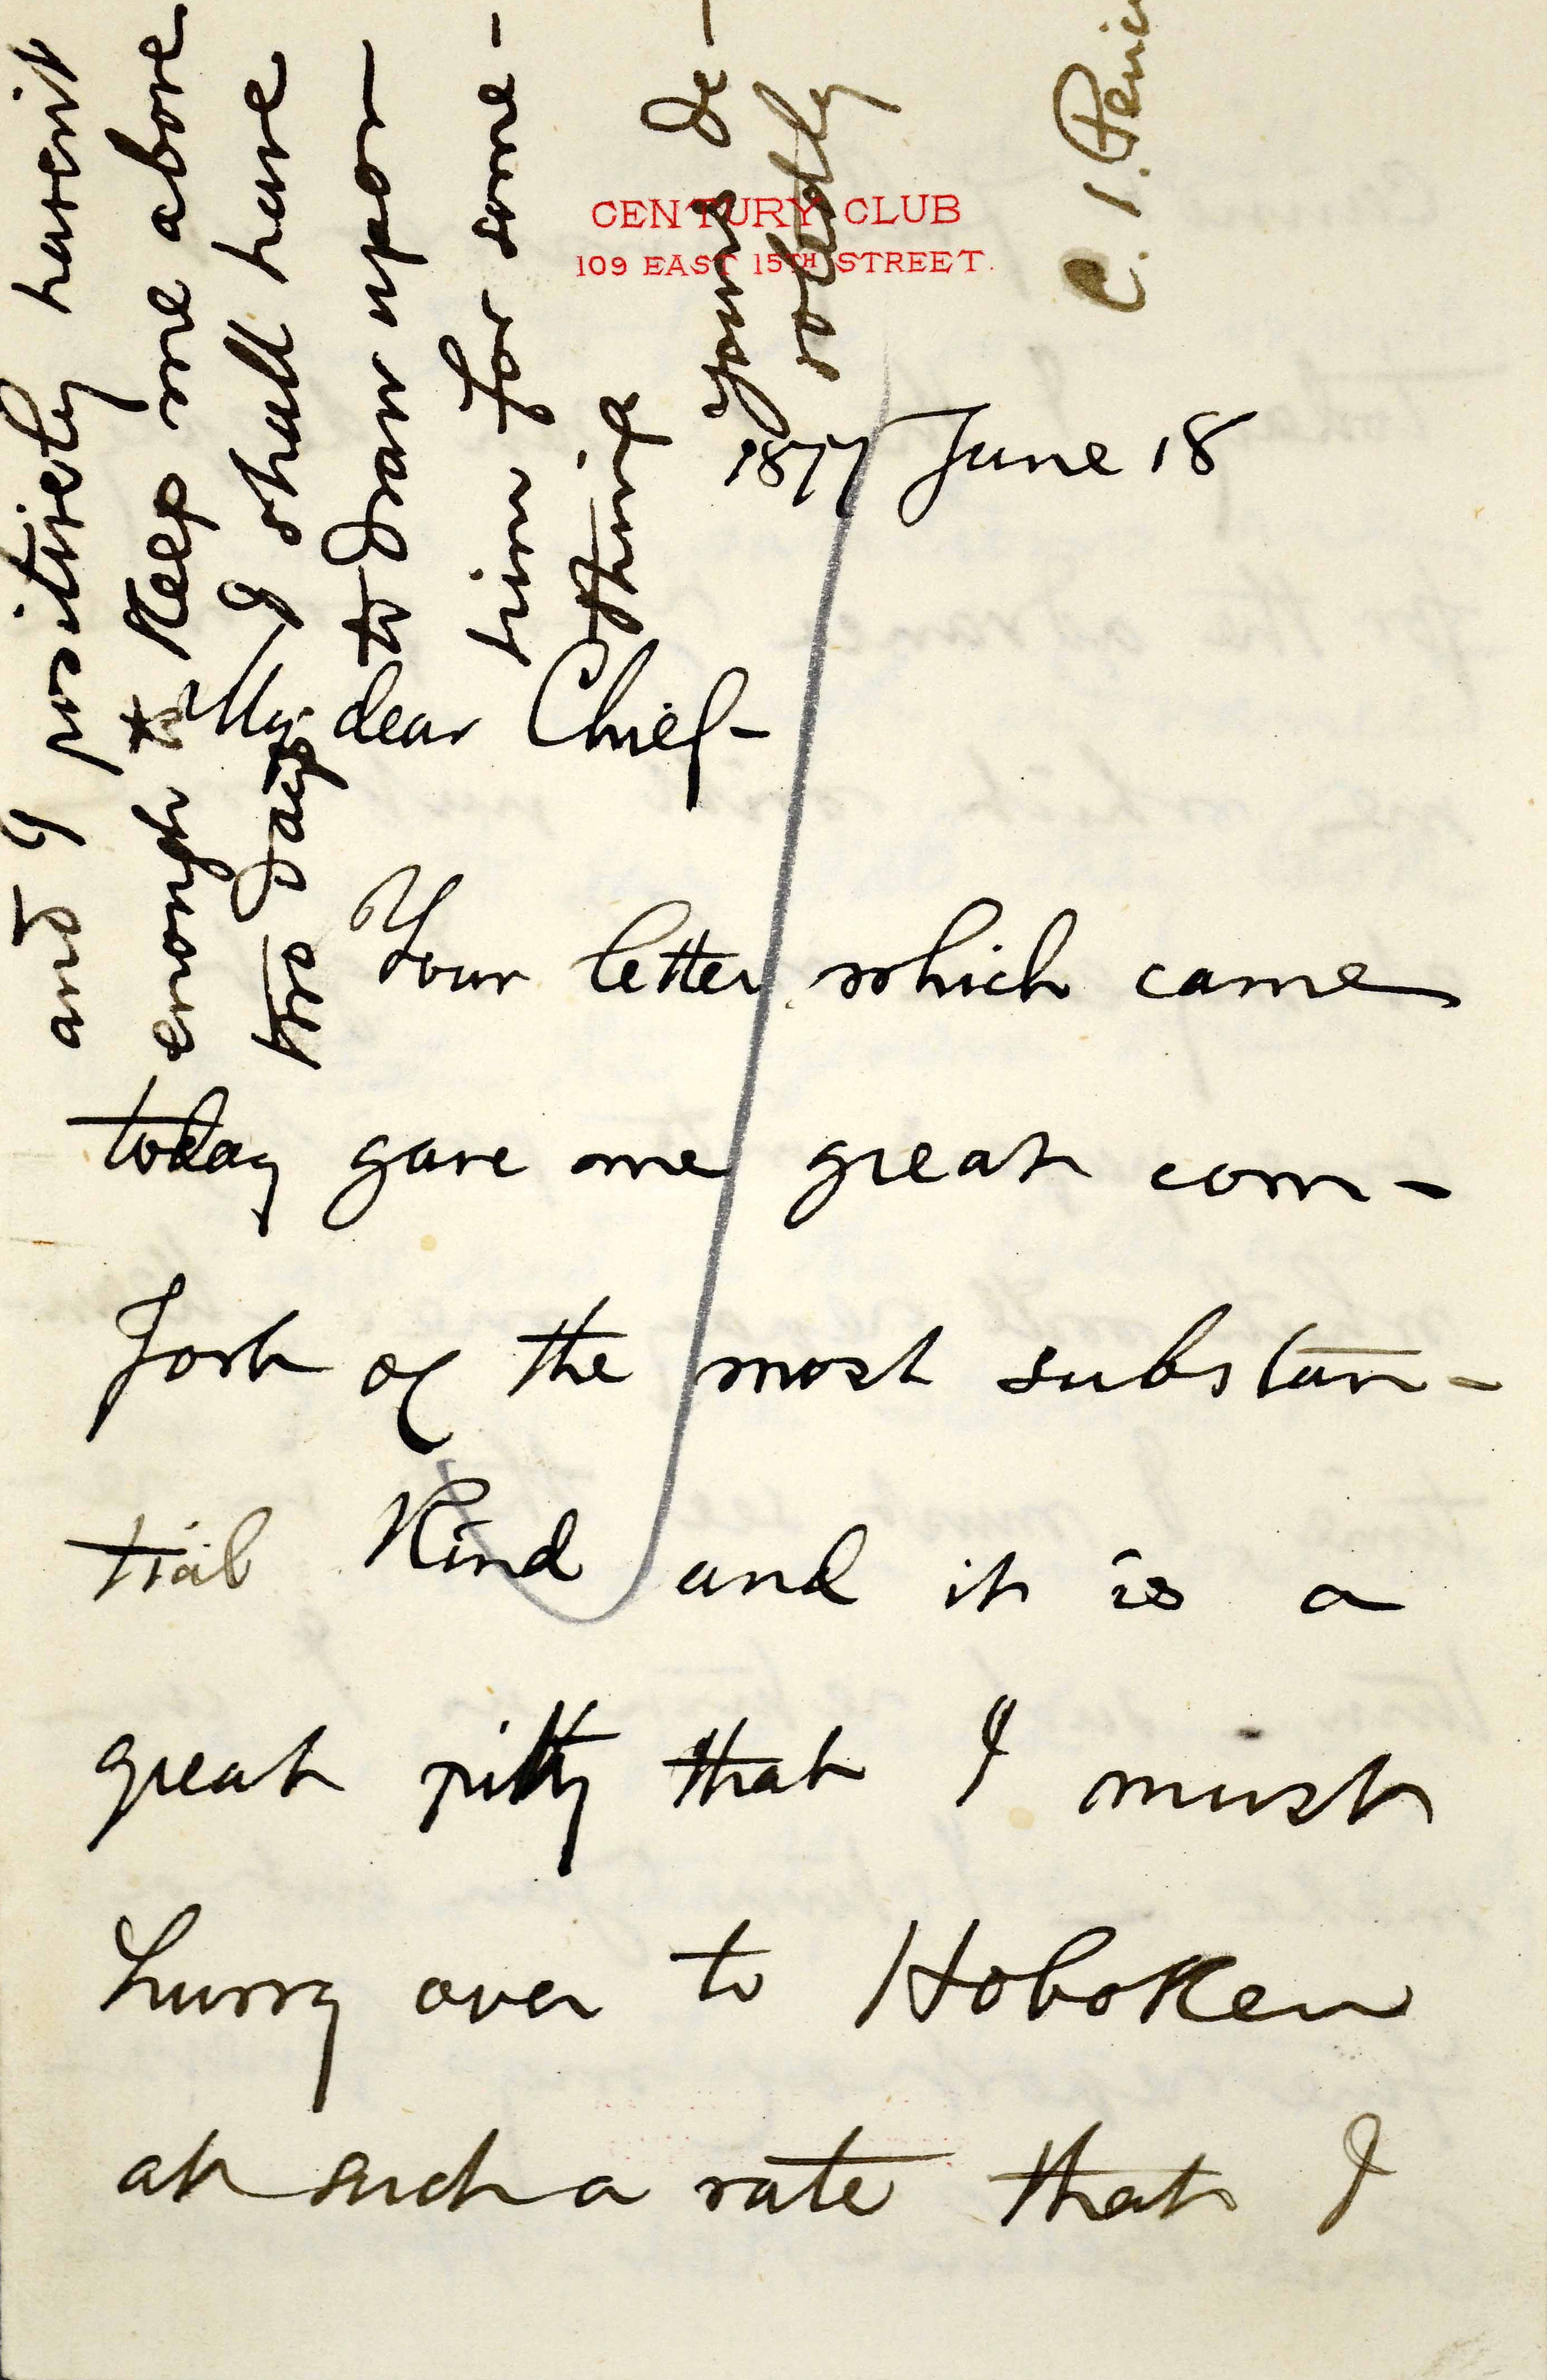 CENTURY CLUB
109 EAST 15TH STREET.
1877 June 18
My dear Chief-
Your letter which came
today gave me great com-
fort of the most substan-
tial kind and it is a
great pitty that I must
hurry over to Hoboken
at such a rate that I
and I positively havent
enough to keep me above
two days I shall have
to draw upon
him for some-
thing
Yours de-
votedly
C. S.